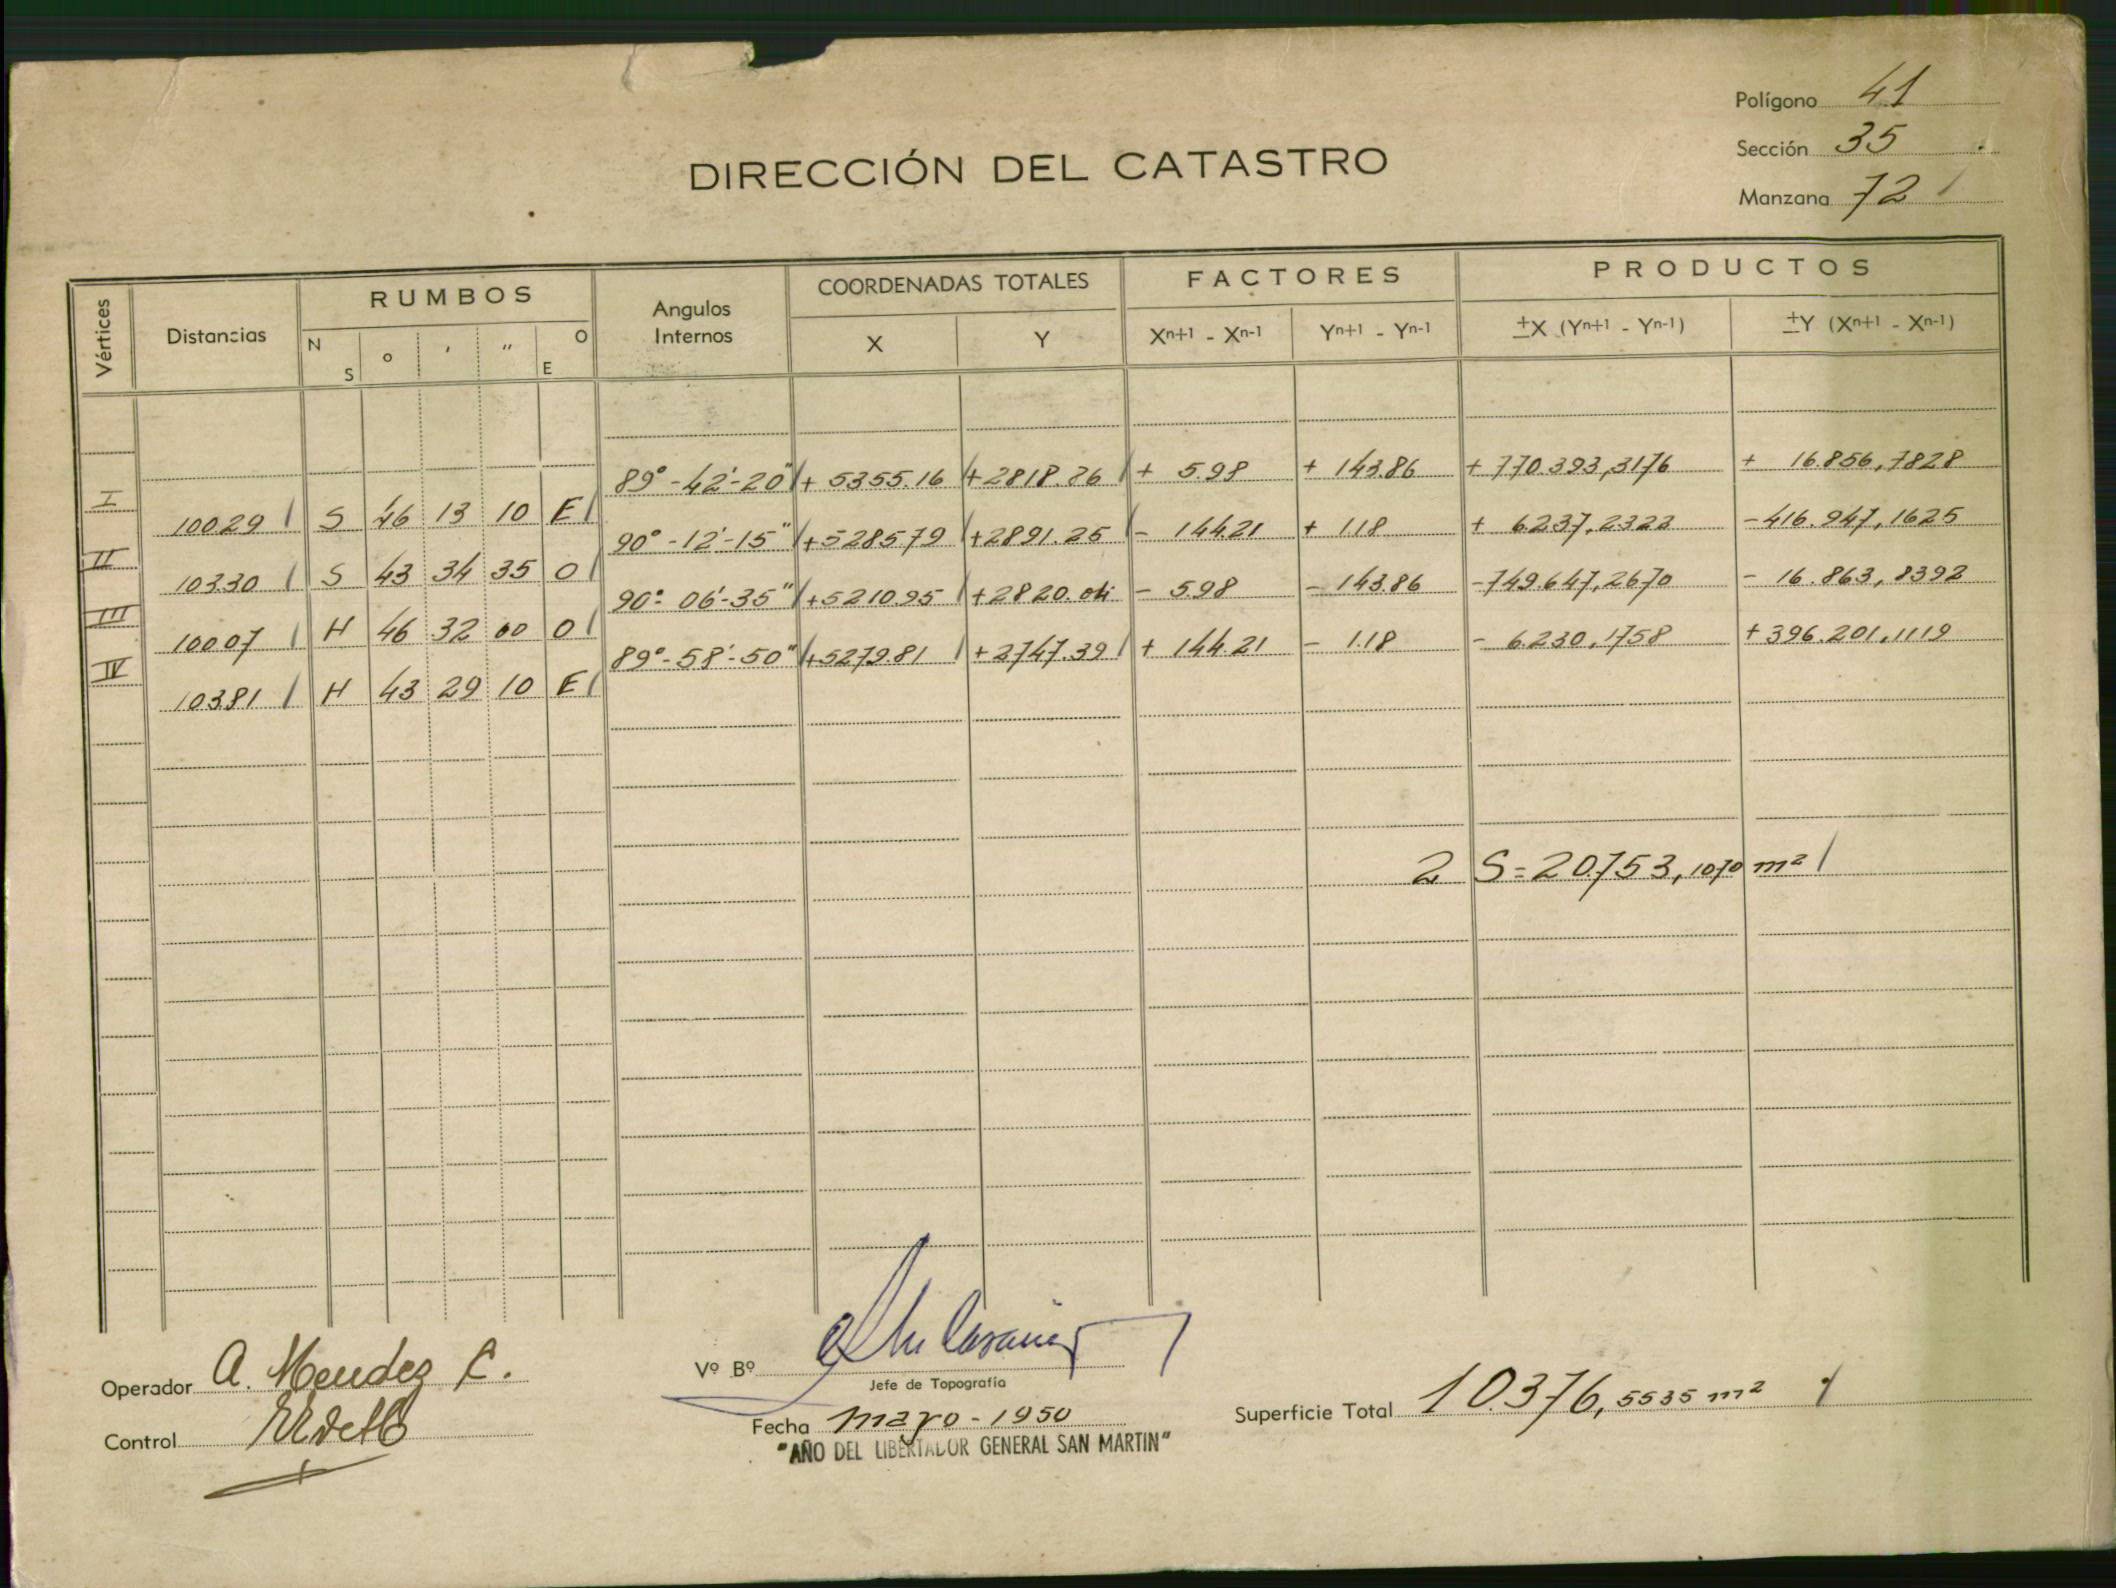 Polígono 41
Sección 35
DIRECCIÓN DEL CATASTRO
Manzana 72
Vértices Distancias RUMBOS N S o ' " O E Angulos Internos COORDENADAS TOTALES X Y FACTORES Xn+1 - Xn-1 Yn+1 - Yn-1 PRODUCTOS ±X (Yn+1 - Yn-1) ±Y (Xn+1 - Xn-1)
89°-42'-20" + 5355.16 +2818.86 + 5.98 + 143.86 + 770.393,3176 + 16.856,7828
I 100.29 S 46 13 10 E
90°-12'-15" +5285.79 +2891.25 - 144.21 + 1.18 + 6.237,2322 -416.947,1625
II 103.30 S 43 34 35 O
90°-06'-35" +5210.95 +2820.04 - 5.98 - 143.86 -749.647,2670 - 16.863,8392
III 100.07 N 46 32 00 O
89°-58'-50" +5279.81 +2747.39 + 144.21 - 1.18 - 6.230,1758 +396.201,1119
IV 103.81 N 43 29 10 E
2 S=20.753,1070 m²
Operador A. Mendez C.
Vº Bº
Jefe de Topografía
Superficie Total 10.376,5535 m²
Control
Fecha mayo-1950
"AÑO DEL LIBERTADOR GENERAL SAN MARTIN"